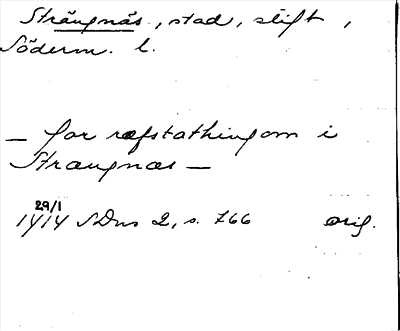 Strängnäs, stad, stift,
Söderm. l.
— for ræfstathingom i
Strængnæs —
29/1
1414 SDns 2, s. 766 orig.